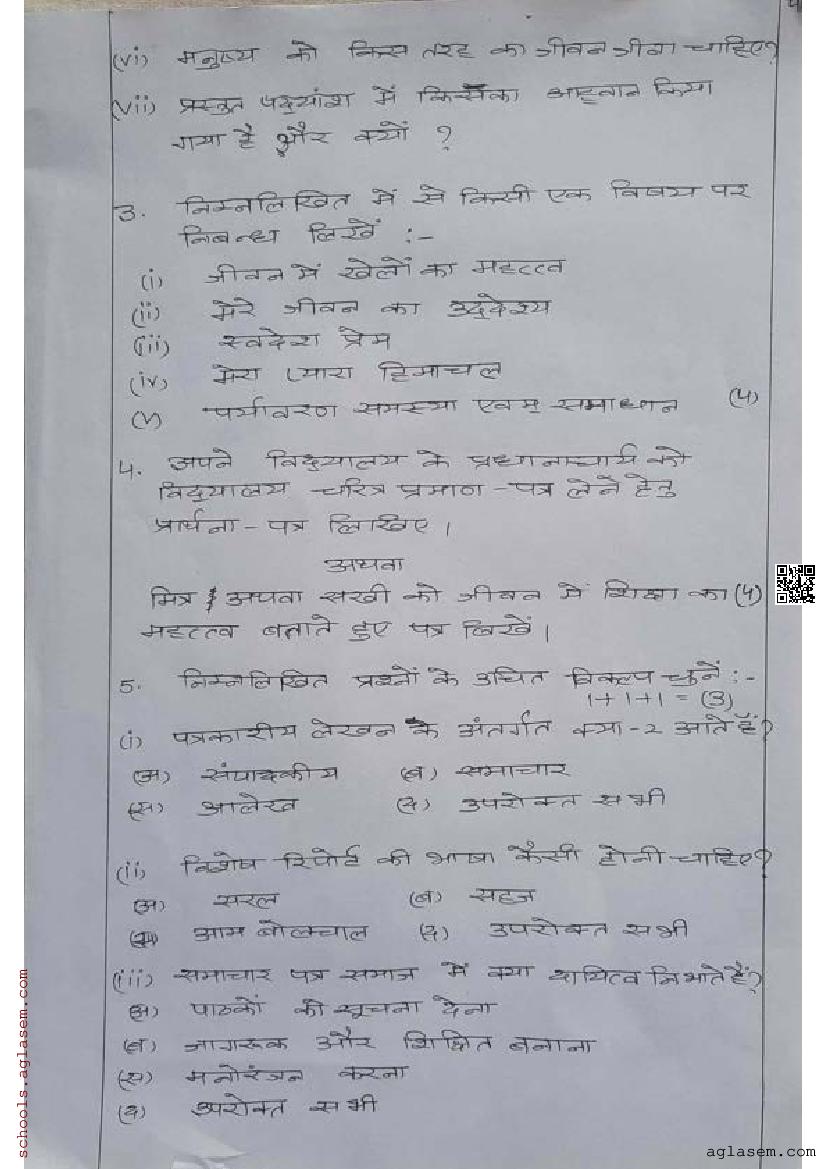 (vi) मनुष्य को किस तरह का जीवन जीना चाहिए?
(vii) प्रस्तुत पद्यांश में किसका आह्वान किया
गया है और क्यों ?
3. निम्नलिखित में से किसी एक विषय पर
निबन्ध लिखें :-
(i) जीवन में खेलों का महत्त्व
(ii) मेरे जीवन का उद्देश्य
(iii) स्वदेश प्रेम
(iv) मेरा प्यारा हिमाचल
(v) पर्यावरण समस्या एवम् समाधान (4)
4. अपने विद्यालय के प्रधानाचार्य को
विद्यालय चरित्र प्रमाण-पत्र लेने हेतु
प्रार्थना-पत्र लिखिए।
अथवा
मित्र अथवा सखी को जीवन में शिक्षा का (4)
महत्त्व बताते हुए पत्र लिखें।
5. निम्नलिखित प्रश्नों के उचित विकल्प चुनें :-
1+1+1=(3)
(i) पत्रकारीय लेखन के अंतर्गत क्या-2 आते हैं?
(अ) संपादकीय (ब) समाचार
(स) आलेख (द) उपरोक्त सभी
(ii) विशेष रिपोर्ट की भाषा कैसी होनी चाहिए?
(अ) सरल (ब) सहज
(स) आम बोलचाल (द) उपरोक्त सभी
(iii) समाचार पत्र समाज में क्या दायित्व निभाते हैं?
(अ) पाठकों को सूचना देना
(ब) जागरूक और शिक्षित बनाना
(स) मनोरंजन करना
(द) उपरोक्त सभी
schools.aglasem.com
aglasem.com